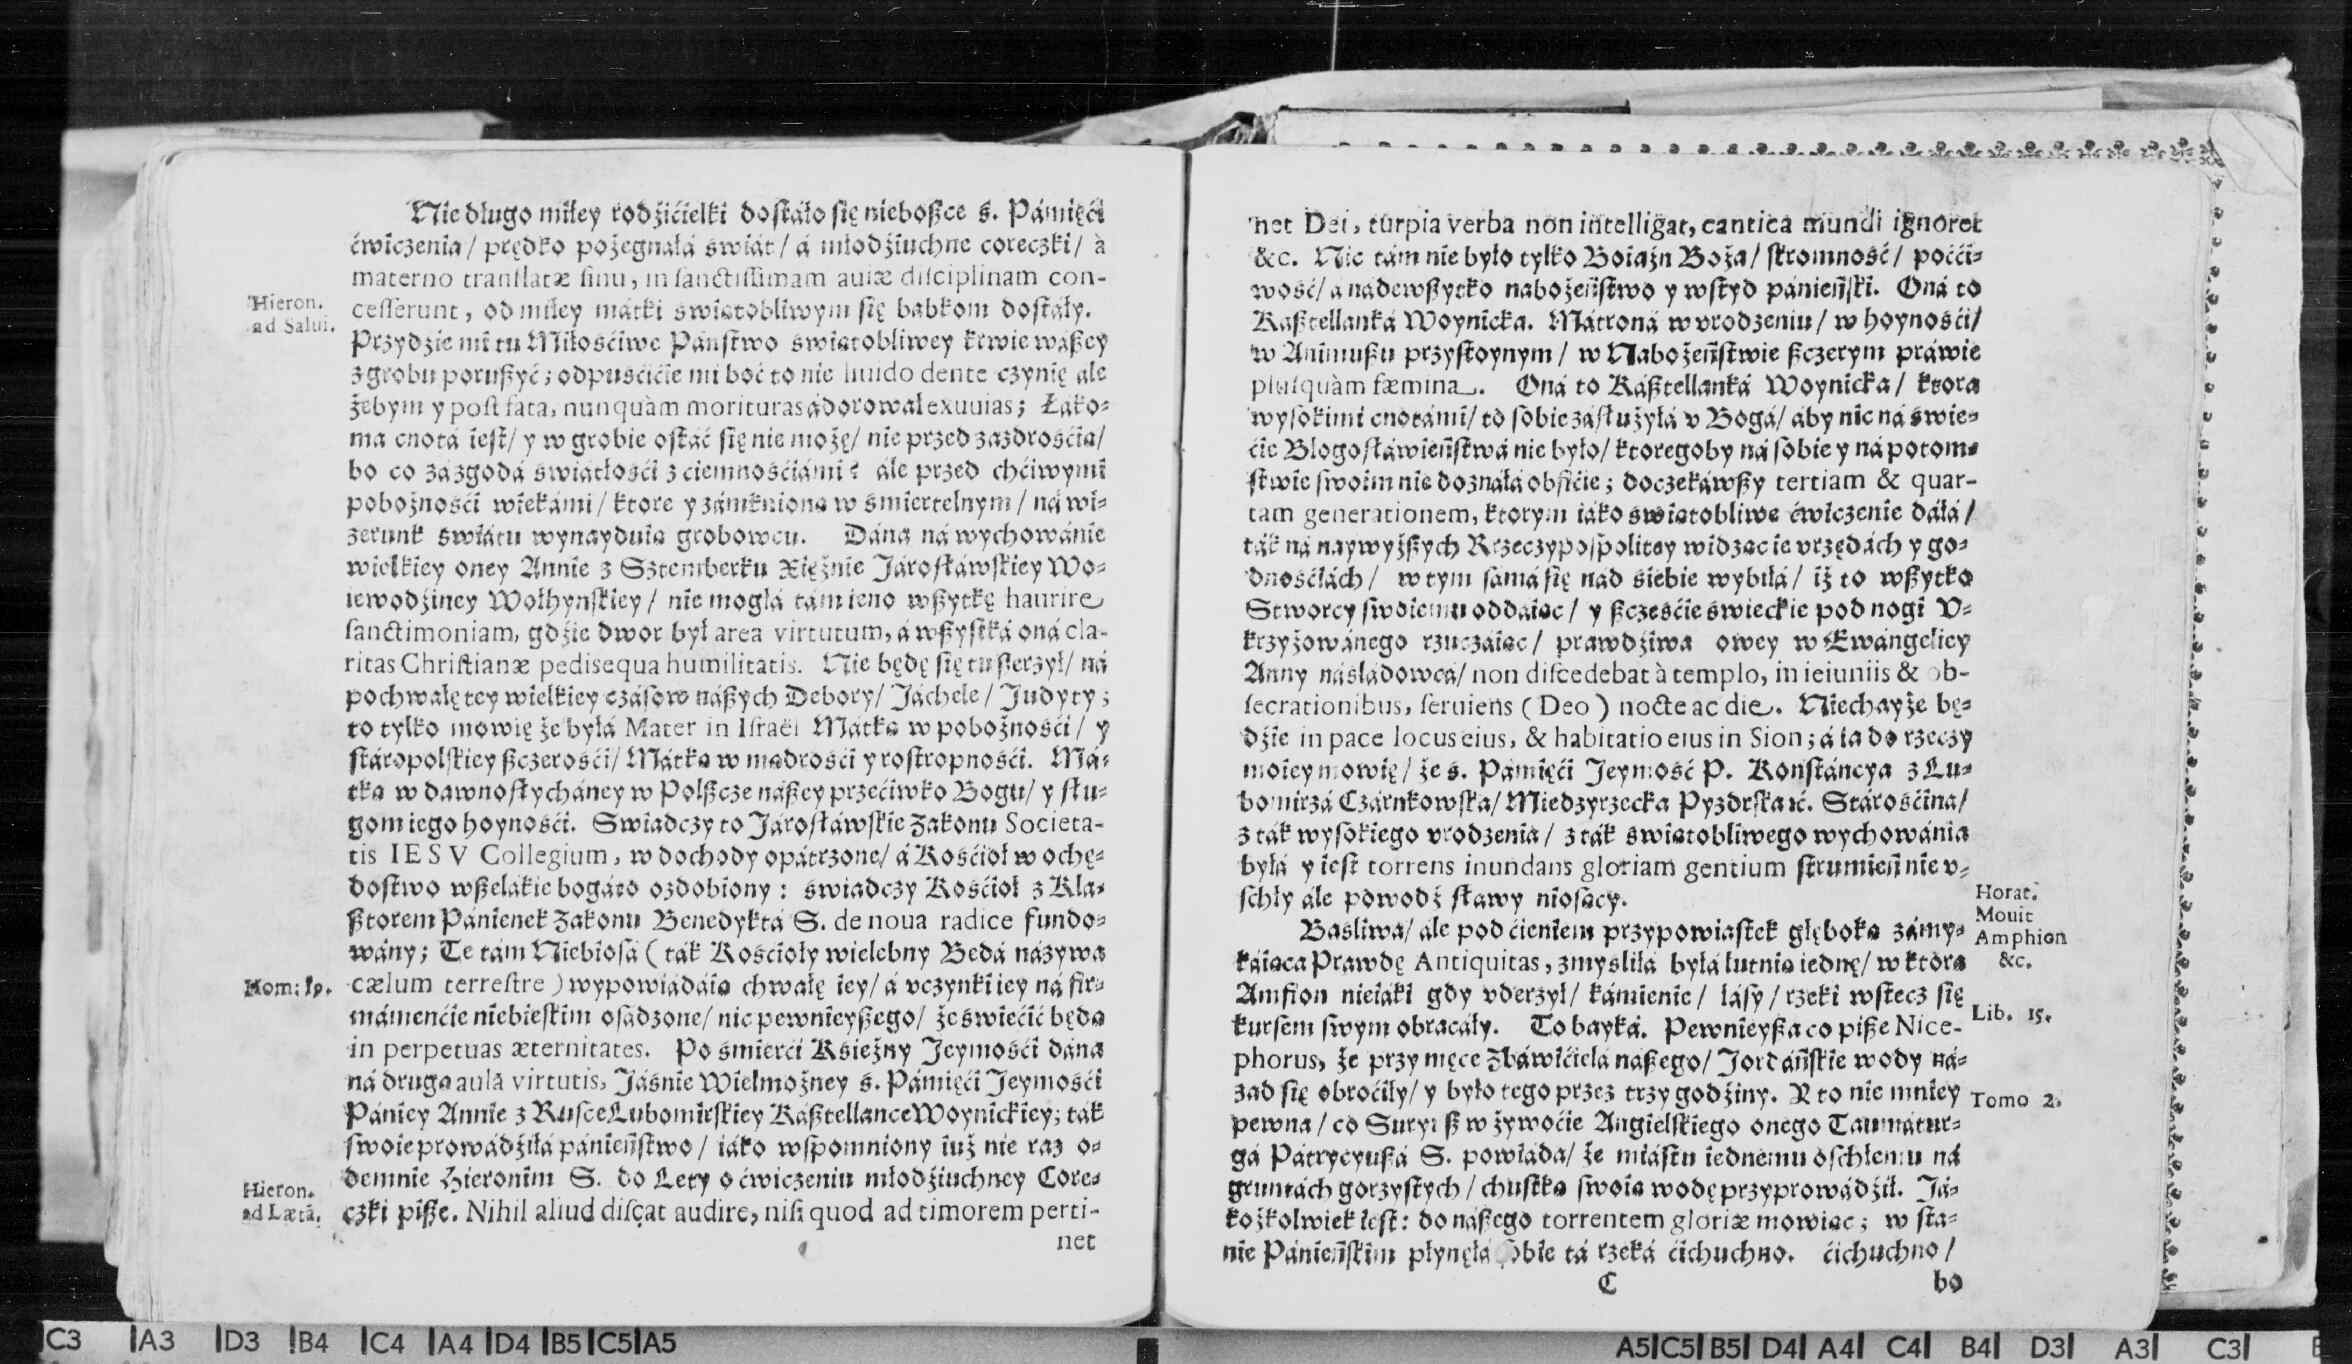 Nie długo miłey rodźićielki dostáło się nieboßce ś. Pámięći
ćwiczenia/ prędko pożegnáłá świát/ á młodźiuchne coreczki/ à
materno translatæ sinu, in sanctissimam auiæ disciplinam con-
Hieron.
ad Salui.
cesserunt, od miłey mátki świątobliwym się babkom dostáły.
Przydzie mi tu Miłośćiwe Páństwo świątobliwey krwie wáßey
z grobu porußyć; odpuśćićie mi boć to nie liuido dente czynię ale
żebym y post fata, nunquàm morituras ádorował exuuias; Łáko-
ma cnotá iest/ y w grobie ostáć się nie może/ nie przed zazdrośćią/
bo co zá zgodá świátłośći z ciemnośćiámi? ále przed chćiwymi
pobożnośći wiekámi/ ktore y zámknioną w śmiertelnym/ ná wi-
zerunk świátu wynayduią grobowcu. Dáná ná wychowánie
wielkiey oney Annie z Sztemberku Xiężnie Járosłáwskiey Wo-
iewodźiney Wołhyńskiey/ nie mogłá tám ieno wßytkę haurire
sanctimoniam, gdźie dwor był area virtutum, á wßystká oná cla-
ritas Christianæ pedisequa humilitatis. Nie będę się tu ßerzył/ ná
pochwałę tey wielkiey czásow náßych Debory/ Jáchele/ Judyty;
to tylko mowię że byłá Mater in Israël Mátką w pobożnośći/ y
stáropolskiey ßczerośći/ Mátką w mądrośći y rostropnośći. Má-
tką w dawno słycháney w Polßcze náßey przećiwko Bogu/ y słu-
gom iego hoynośći. Swiádczy to Járosłáwskie Zakonu Societa-
tis IESV Collegium, w dochody opátrzone/ á Kośćioł w ochę-
dostwo wßelákie bogáto ozdobiony: świadczy Kośćioł z Kla-
ßtorem Pánienek Zakonu Benedyktá S. de noua radice fundo-
wány; Te tám Niebiosá (ták Kośćioły wielebny Bedá názywa
Hom: 19.
cælum terrestre) wypowiádáią chwałę iey/ á vczynki iey ná fir-
mámenćie niebieskim osádzone/ nic pewnieyßego/ że świećić będą
in perpetuas æternitates. Po śmierći Księżny Jeymośći dána
ná drugą aulā virtutis, Jáśnie Wielmożney ś. Pámięći Jeymośći
Pániey Annie z Rusce Lubomirskiey Káßtellance Woynickiey; ták
swoie prowádźiłá pánieństwo/ iáko wspomniony iuż nie raz o-
demnie Hieronim S. do Lety o ćwiczeniu młodźiuchney Core-
Hieron.
ad Lætā.
czki piße. Nihil aliud discat audire, nisi quod ad timorem perti-
net
net Dei, turpia verba non intelligat, cantica mundi ignoret
&c. Nic tám nie było tylko Boiaźń Boża/ skromność/ poćći-
wość/ á nadewßytko nabożeństwo y wstyd pánieński. Oná to
Kaßtellanká Woynicka. Mátroná w vrodzeniu/ w hoynośći/
w Animußu przystoynym/ w Nabożeństwie ßczerym práwie
plusquàm fæmina. Oná to Káßtellanká Woynicka/ ktora
wysokimi cnotámi/ to sobie zásłużyłá v Bogá/ áby nic ná świe-
ćie Błogosłáwieństwá nie było/ ktoregoby ná sobie y ná potom-
stwie swoim nie doznáłá obfićie; doczekáwßy tertiam & quar-
tam generationem, ktorym iáko świątobliwe ćwiczenie dáłá/
ták ná naywyżßych Rzeczypospolitey widząc ie vrzędách y go-
dnośćiách/ w tym sámá się nád siebie wybiłá/ iż to wßytko
Stworcy swoiemu oddaiąc/ y ßczesćie świeckie pod nogi V-
krzyżowánego rzucáiąc/ prawdźiwa owey w Ewángeliey
Anny násládowcá/ non discedebat à templo, in ieiuniis & ob-
secrationibus, seruiens (Deo) nocte ac die. Niechayże bę-
dźie in pace locus eius, & habitatio eius in Sion; á ia do rzeczy
moiey mowię/ że ś. Pámięći Jeymość P. Konstáncya z Lu-
bomirzá Czárnkowska/ Miedzyrzecka Pyzdrska ić. Stárośćina/
z ták wysokiego vrodzenia/ z ták świątobliwego wychowánia
byłá y iest torrens inundans gloriam gentium strumień nie v-
schły ále powodź sławy niosący.
Horat.
Mouit
Amphion
&c.
Baśliwa/ ále pod ćieniem przypowiastek głęboko zámy-
káiąca Prawdę Antiquitas, zmyśliłá byłá lutnią iednę/ w ktorą
Amfion nieiáki gdy vderzył/ kámienie/ lásy/ rzeki wstecz się
Lib. 15.
kursem swym obracáły. To bayká. Pewnieyßa co piße Nice-
phorus, że przy męce Zbáwićielá náßego/ Jordáńskie wody ná-
zad się obroćiły/ y było tego przez trzy godźiny. Y to nie mniey
Tomo 2.
pewna/ co Suryuß w żywoćie Angielskiego onego Taumátur-
gá Pátrycyußá S. powiáda/ że miástu iednemu oschłemu ná
gruntách gorzystych/ chustką swoią wodę przyprowádźił. Já-
kożkolwiek iest: do náßego torrentem gloriæ mowiąc; w sta-
nie Pánieńskim płynęłá sobie tá rzeká ćichuchno. ćichuchno/
C
bo
C3 A3 D3 B4 C4 A4 D4 B5 C5 A5
A5 C5 B5 D4 A4 C4 B4 D3 A3 C3